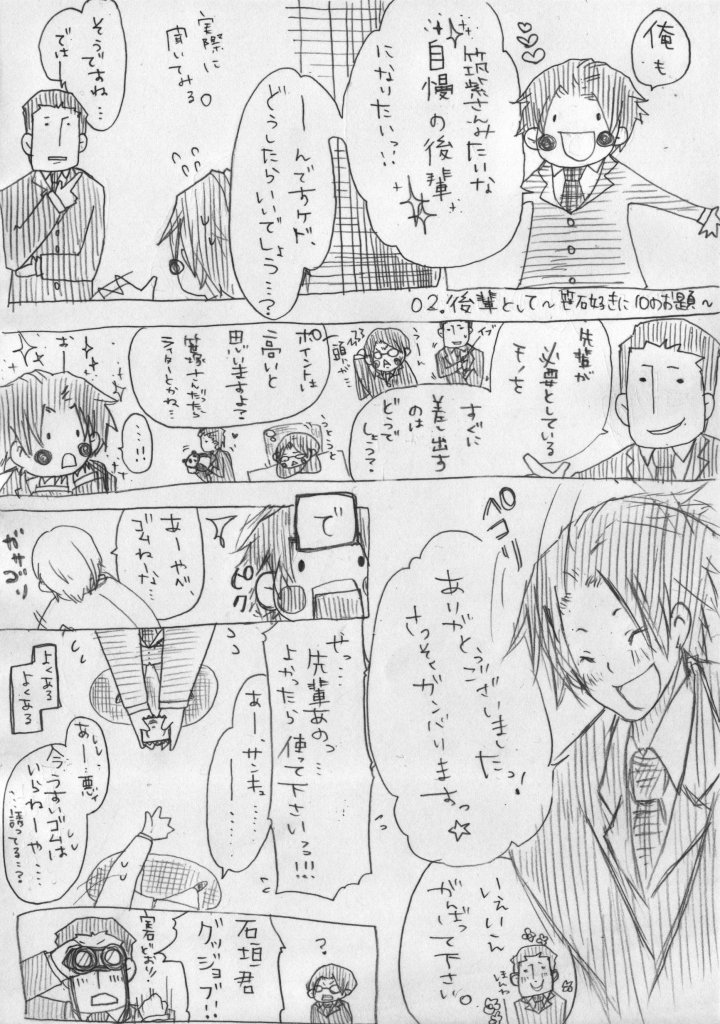 俺も
筑紫さんみたいな
自慢の後輩
になりたいっ!!
実際に
聞いてみる。
ーんですケド、
どうしたらいいでしょう…?
そうですね…
では
02.後輩として〜笛石好きに10のお題〜
先輩が
必要としている
モノを
すぐに
差し出す
のは
どうで
しょう?
うーん
頭が…
イブ
ポイントは
高いと
思いますよ?
笛塚さんだったら
ライターとかね…
うっとうっと
お
…!!!
ペコリ
ありがとうございましたっ!
さっそくガンバりますっ☆
いえいえ
がんばって下さい。
ほんわ
で
ピク
あーやべ、
ゴムねーな…
ガサゴソ
やっ…
先輩あのっ
よかったら使って下さいっ!!!
あー、サンキュ……
ー……
よくある
よくある
あー…悪ィ
今うすいゴムは
いらねーや…
…誘ってる…?
?
石垣君
グッジョブ!!
害どおり!